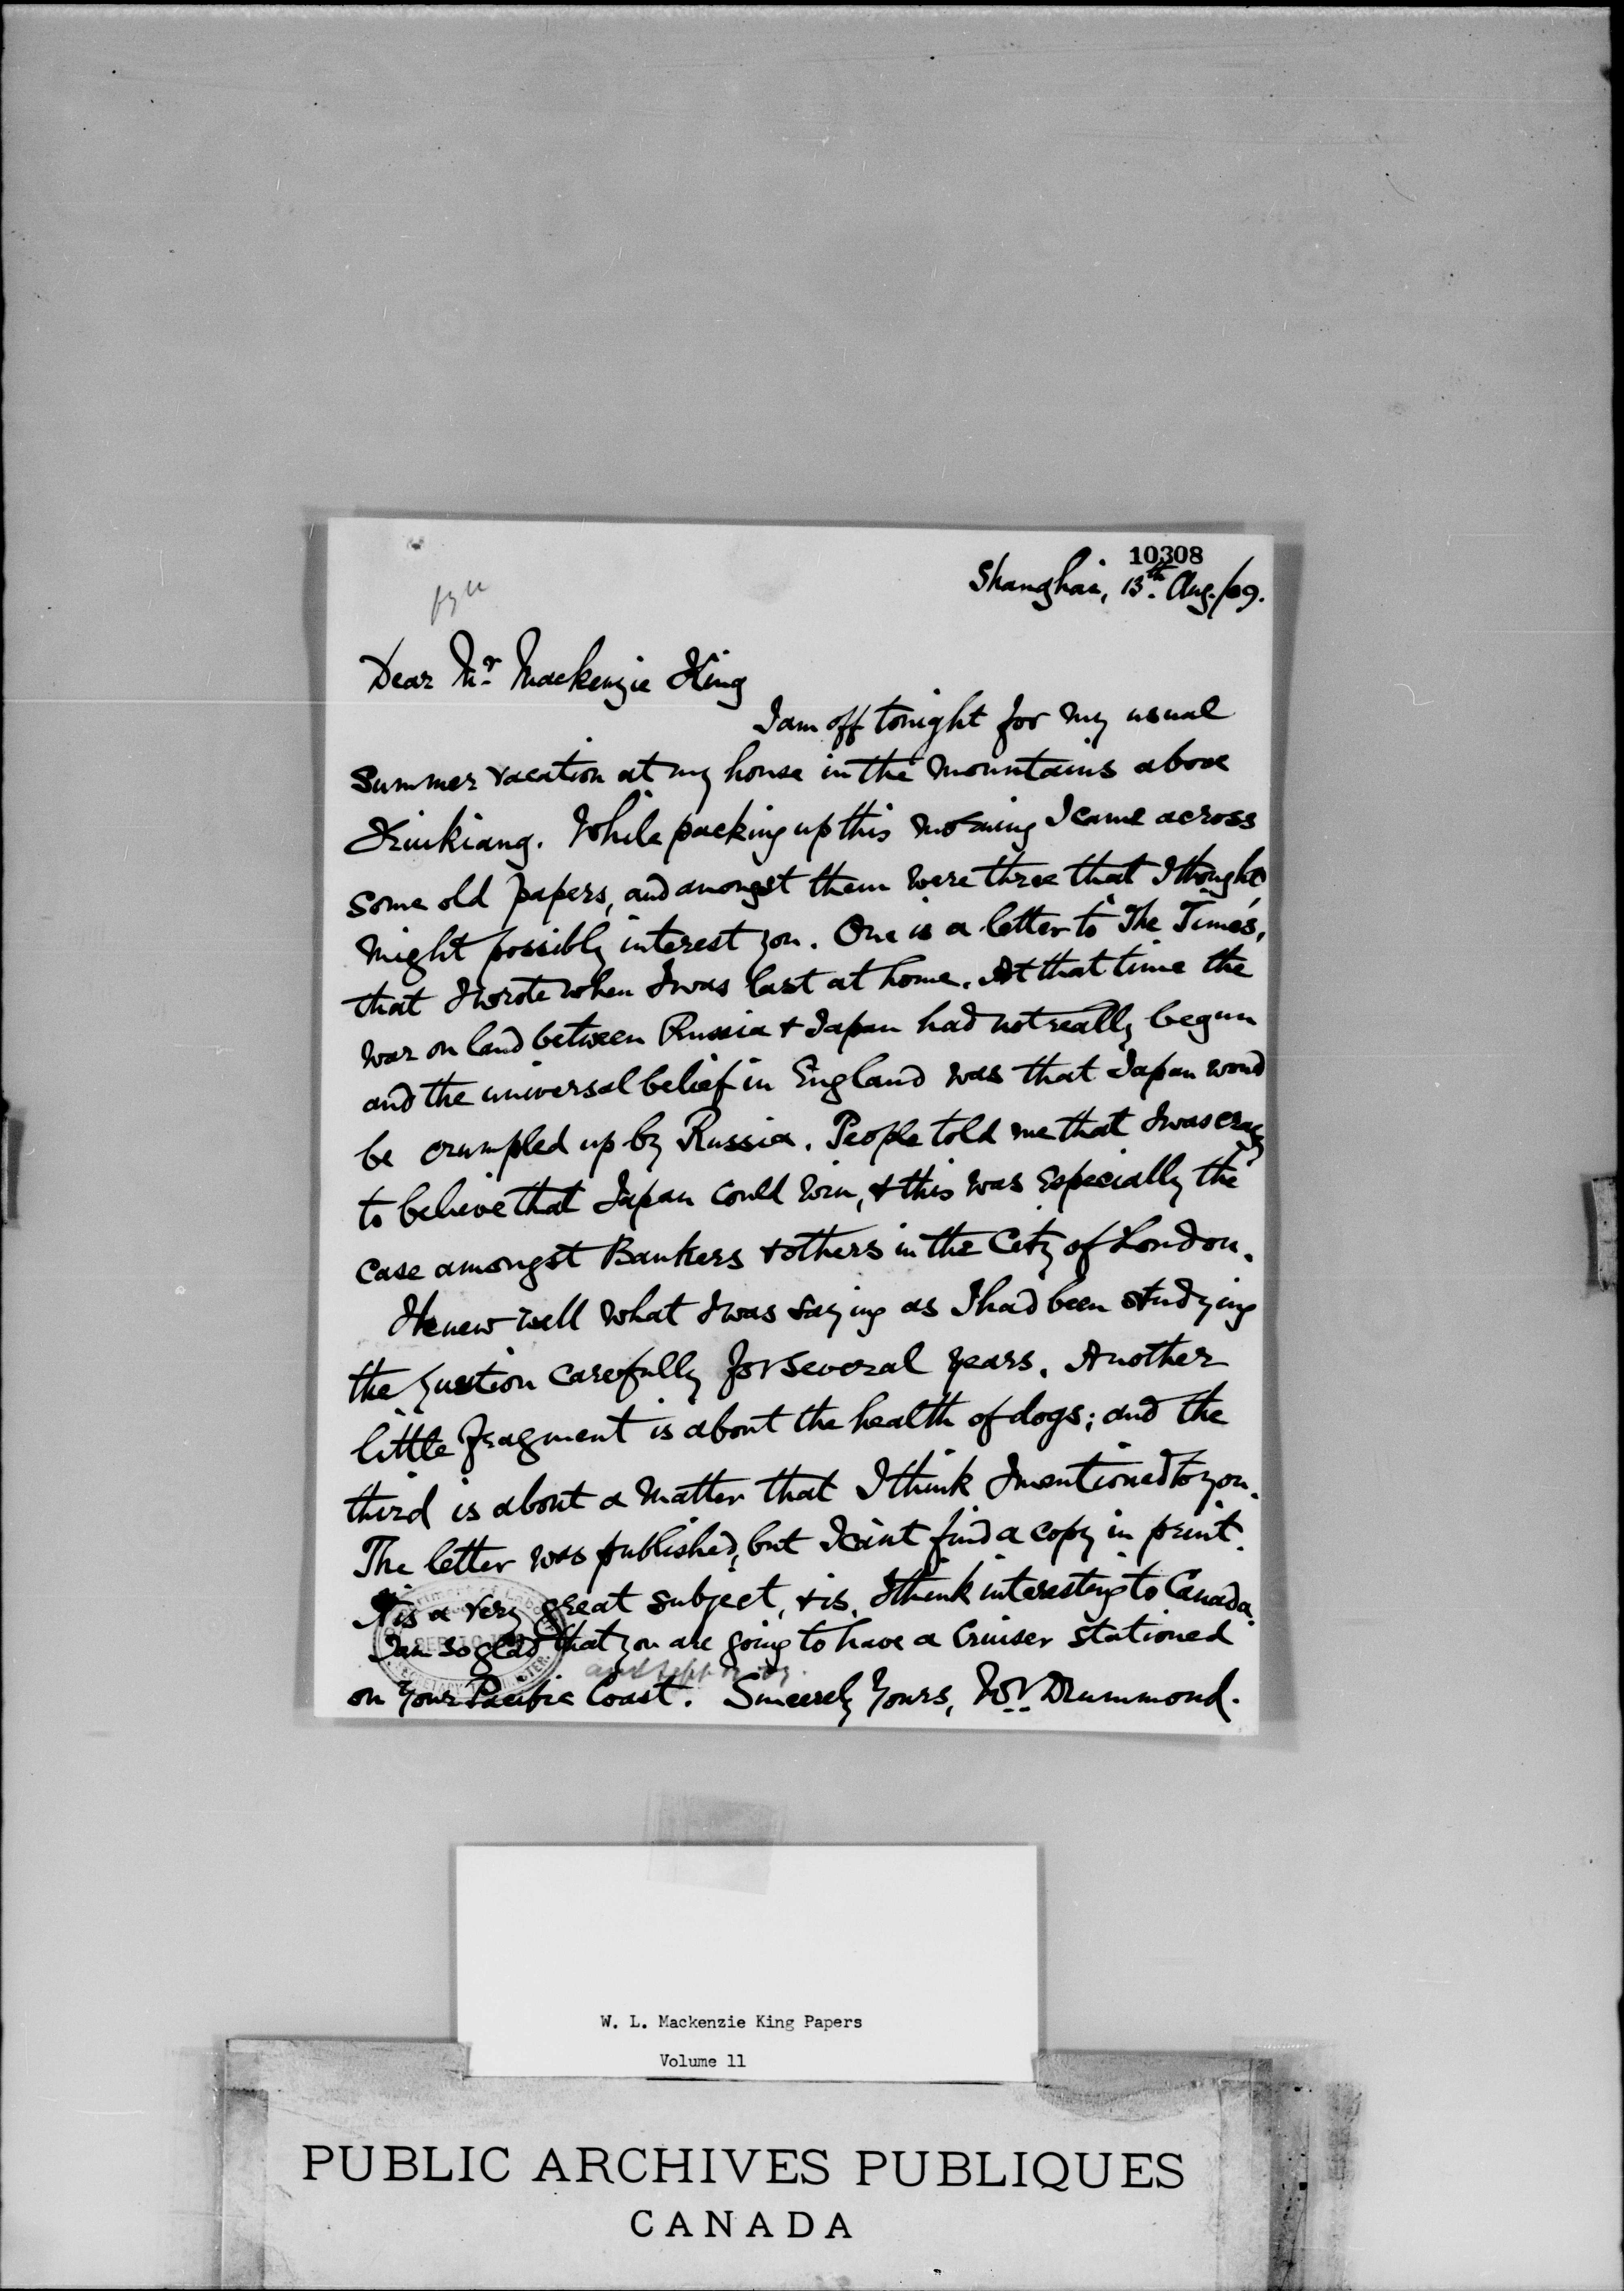 10308
Shanghai, 13th Aug./09.
Dear Mr. Mackenzie King
I am off tonight for my usual
Summer vacation at my house in the mountains above
Kiukiang. While packing up this morning I came across
some old papers, and amongst them were three that I thought
might possibly interest you. One is a letter to "The Times,"
that I wrote when I was last at home. At that time the
war on land between Russia + Japan had not really begun
and the universal belief in England was that Japan woud
be crumpled up by Russia. People told me that I was crazy
to believe that Japan could win, + this was especially the
case amongst Bankers + others in the City of London.
I knew well what I was saying as I had been studying
the question carefully for several years. Another
little fragment is about the health of dogs; and the
third is about a matter that I think I mentioned to you.
The letter was published, but I can't find a copy in print.
It is a very great subject, + is, I think interesting to Canada.
I am so glad that you are going to have a Cruiser stationed
on your Pacific Coast. Sincerely Yours, WV Drummond.
W. L. Mackenzie King Papers
Volume 11
PUBLIC ARCHIVES PUBLIQUES
CANADA